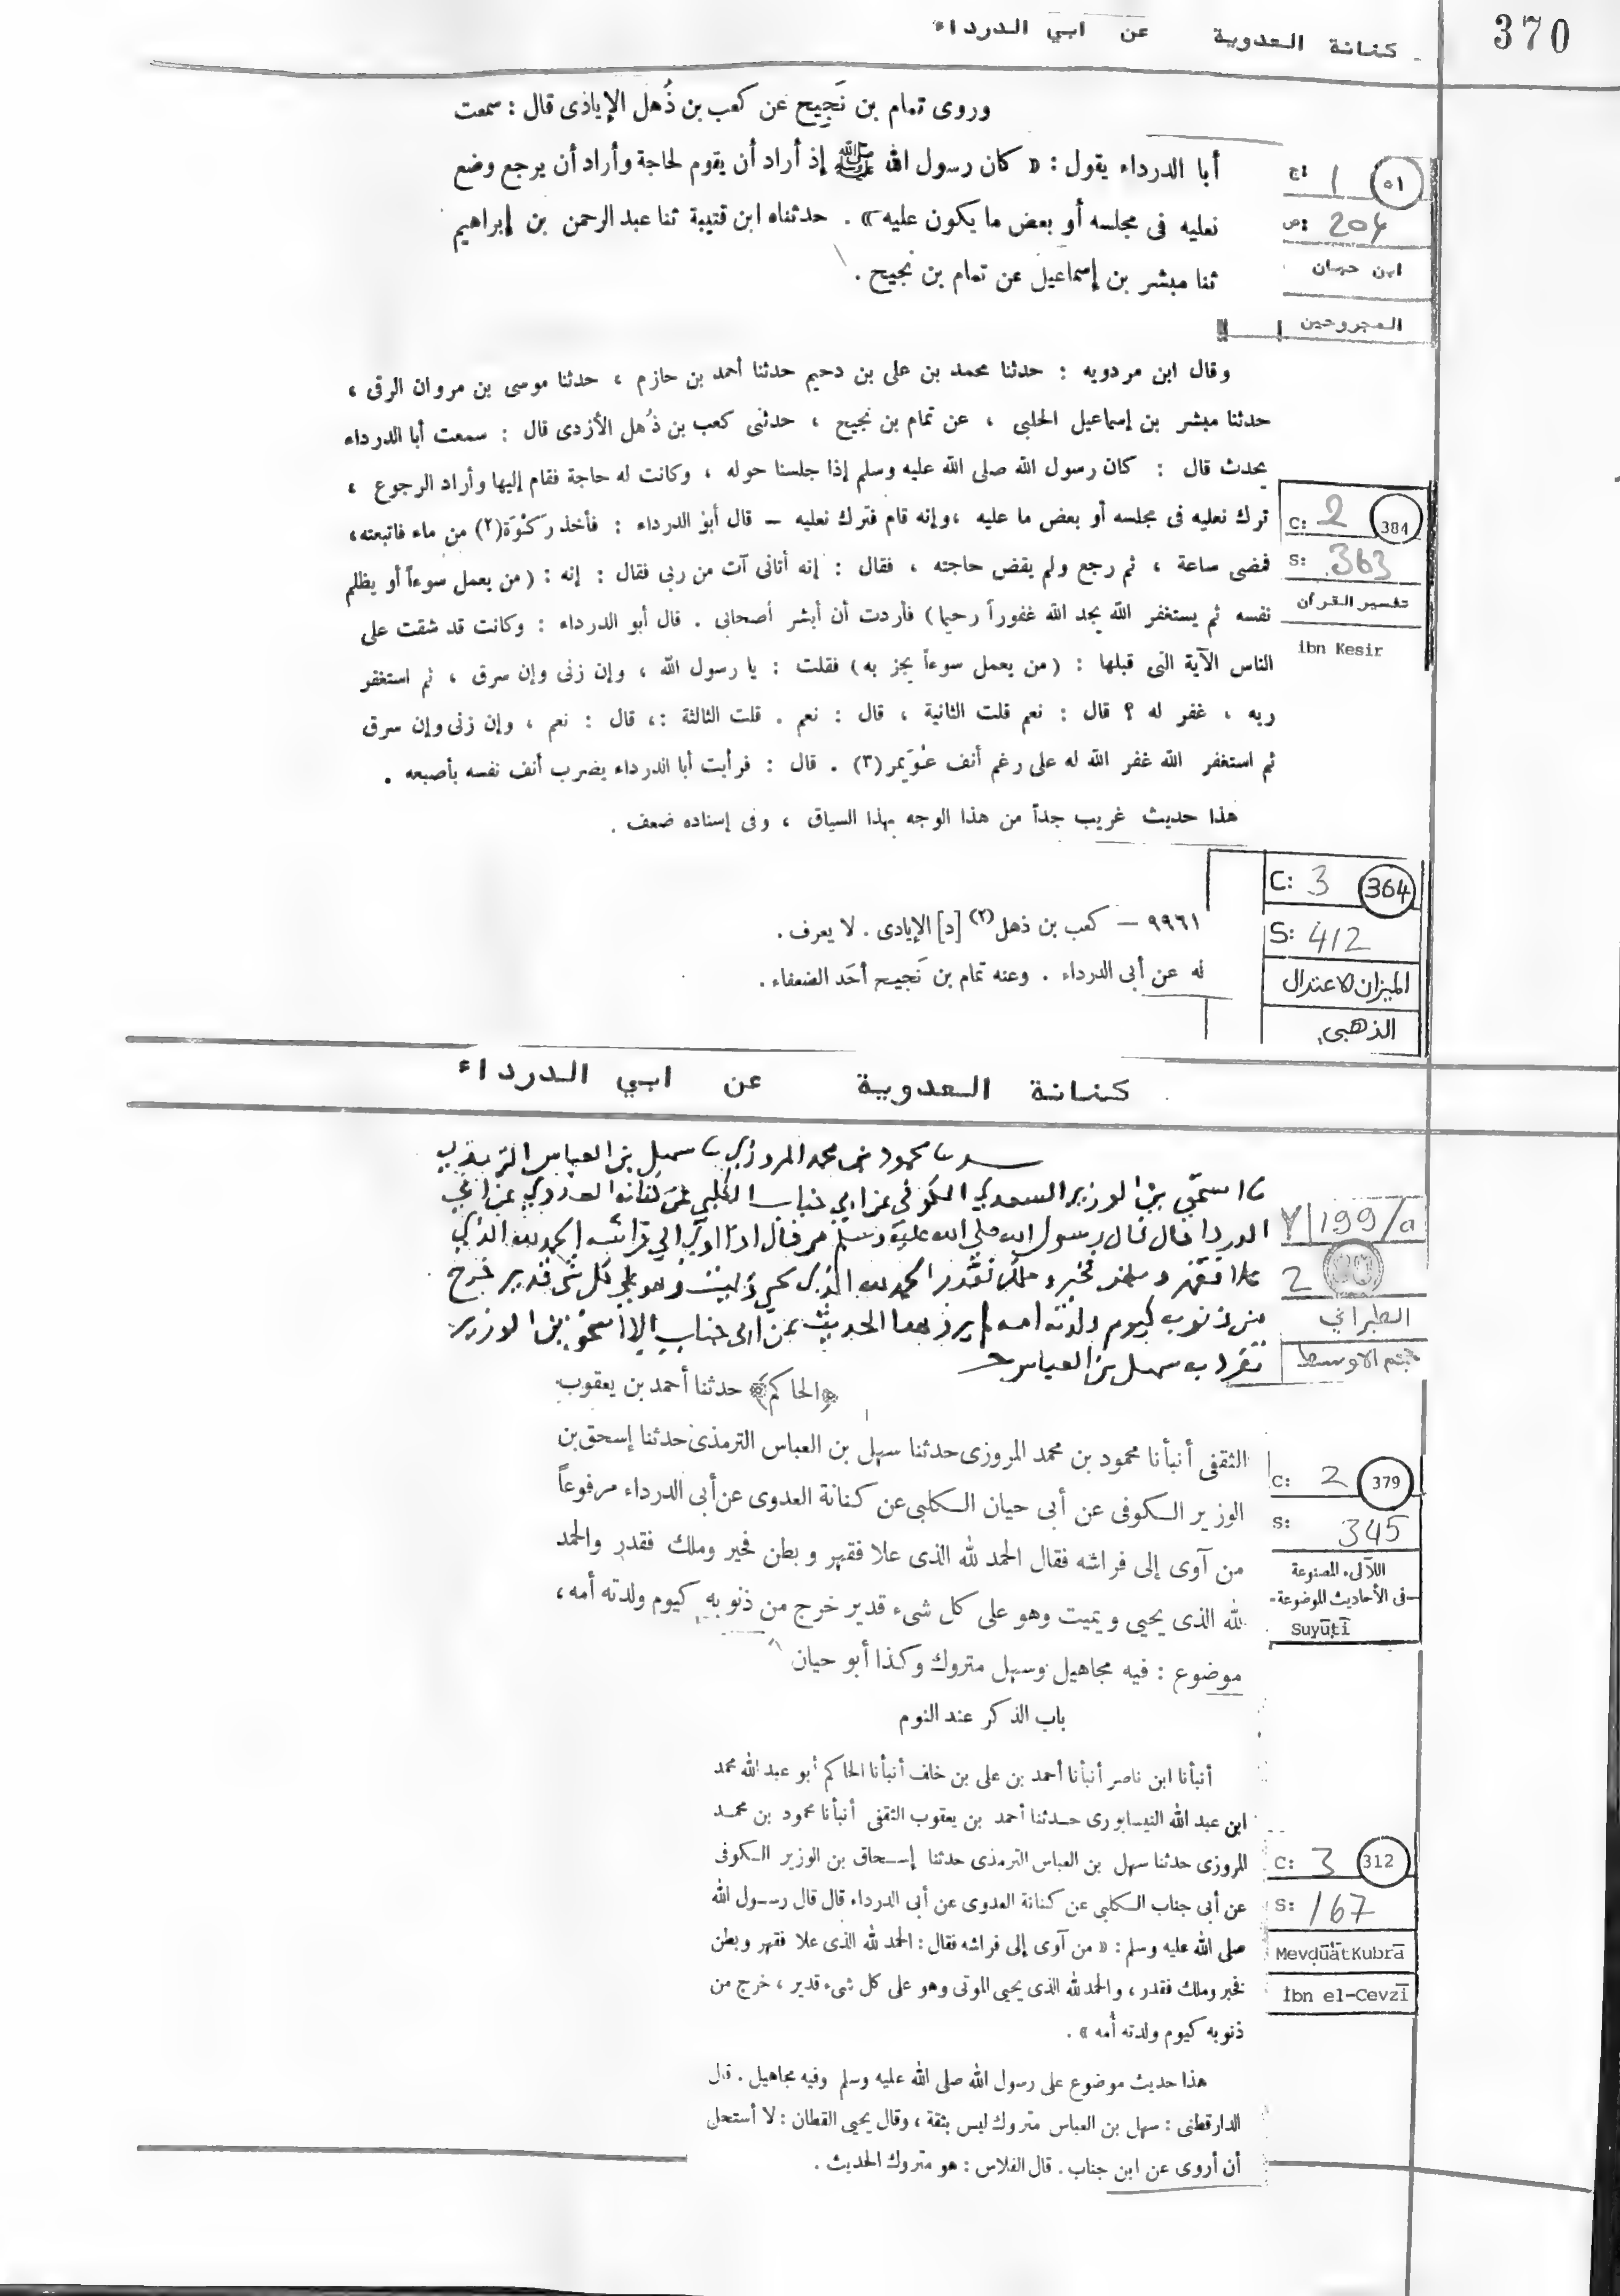 كنانة العدوية عن ابي الدرداء
370
وروى تمام بن نَجِيح عن كعب بن ذُهل الإياذى قال : سمعت
أبا الدرداء يقول : « كان رسول الله ﷺ إذ أراد أن يقوم لحاجة وأراد أن يرجع وضع
نعليه فى مجلسه أو بعض ما يكون عليه » . حدثناه ابن قتيبة ثنا عبد الرحمن بن إبراهيم
ثنا مبشر بن إسماعيل عن تمام بن نجيح .
ج: 1 ٥١
ص: 204
ابن حبان
المجروحين
وقال ابن مردويه : حدثنا محمد بن على بن دحيم حدثنا أحمد بن حازم ، حدثنا موسى بن مروان الرقى ،
حدثنا مبشر بن إسماعيل الحلبى ، عن تمام بن نجيح ، حدثنى كعب بن ذُهل الأزدى قال : سمعت أبا الدرداء
يحدث قال : كان رسول الله صلى الله عليه وسلم إذا جلسنا حوله ، وكانت له حاجة فقام إليها وأراد الرجوع ،
ترك نعليه فى مجلسه أو بعض ما عليه ،وإنه قام فترك نعليه – قال أبو الدرداء : فأخذ رَكْوَة(٢) من ماء فاتبعته،
فمضى ساعة ، ثم رجع ولم يقض حاجته ، فقال : إنه أتانى آت من ربى فقال : إنه : ( من يعمل سوءاً أو يظلم
نفسه ثم يستغفر الله يجد الله غفوراً رحيما ) فأردت أن أبشر أصحابى . قال أبو الدرداء : وكانت قد شقت على
الناس الآية التى قبلها : ( من يعمل سوءاً يجز به ) فقلت : يا رسول الله ، وإن زنى وإن سرق ، ثم استغفر
ربه ، غفر له ؟ قال : نعم قلت الثانية ، قال : نعم . قلت الثالثة :، قال : نعم ، وإن زنى وإن سرق
ثم استغفر الله غفر الله له على رغم أنف عُوَيمر (٣) . قال : فرأيت أبا الدرداء يضرب أنف نفسه بأصبعه .
هذا حديث غريب جداً من هذا الوجه بهذا السياق ، وفى إسناده ضعف .
C: 2 384
S: 363
تفسير القرآن
ibn Kesir
٩٩٦١ – كعب بن ذهل (٢) [د] الإيادى . لا يعرف .
له عن أبى الدرداء . وعنه تمام بن نَجيح أحَد الضعفاء .
C: 3 364
S: 412
الميزان الاعتدال
الذهبى
كنانة العدوية عن ابي الدرداء
محمود بن محمد المروزي سهيل بن العباس الترمذي
بن الوزير السعدي الكوفي عن ابي جناب الكلبي عن كنانة العدوي عن ابي
الدردا قال قال رسول الله صلى الله عليه وسلم من قال اذا اوى الى فراشه الحمد لله الذي
علا فقهر وبطن فخبر وملك فقدر الحمد لله الذي يحي ويميت وهو على كل شى قدير خرج
من ذنوبه كيوم ولدته امه لم يرو هذا الحديث عن ابى جناب الا اسحق بن الوزير
تفرد به سهيل بن العباس
199/a
2
الطبراني
الاوسط
﴿الحاكم﴾ حدثنا أحمد بن يعقوب
الثقفى أنبأنا محمود بن محمد المروزى حدثنا سهل بن العباس الترمذى حدثنا إسحق بن
الوزير الكوفى عن أبى حيان الكلبى عن كنانة العدوى عن أبى الدرداء مرفوعاً
من آوى إلى فراشه فقال الحمد لله الذى علا فقهر وبطن فخبر وملك فقدر والحمد
لله الذى يحيى ويميت وهو على كل شىء قدير خرج من ذنوبه كيوم ولدته أمه ،
موضوع : فيه مجاهيل وسهل متروك وكذا أبو حيان
C: 2 379
S: 345
اللآلىء المصنوعة
فى الأحاديث الموضوعة-
Suyūṭī
باب الذكر عند النوم
أنبأنا ابن ناصر أنبأنا أحمد بن على بن خلف أنبأنا الحاكم أبو عبد الله محمد
ابن عبد الله النيسابورى حدثنا أحمد بن يعقوب الثقفى أنبأنا محمود بن محمد
المروزى حدثنا سهل بن العباس الترمذى حدثنا إسحاق بن الوزير الكوفى
عن أبى جناب الكلبى عن كنانة العدوى عن أبى الدرداء قال قال رسول الله
صلى الله عليه وسلم : « من آوى إلى فراشه فقال : الحمد لله الذى علا فقهر وبطن
فخبر وملك فقدر ، والحمد لله الذى يحيى الموتى وهو على كل شىء قدير ، خرج من
ذنوبه كيوم ولدته أمه » .
هذا حديث موضوع على رسول الله صلى الله عليه وسلم وفيه مجاهيل . قال
الدارقطنى : سهل بن العباس متروك ليس بثقة ، وقال يحيى القطان : لا أستحل
أن أروى عن ابن جناب . قال الفلاس : هو متروك الحديث .
C: 3 312
S: 167
Mevḍūāt Kubrā
İbn el-Cevzī